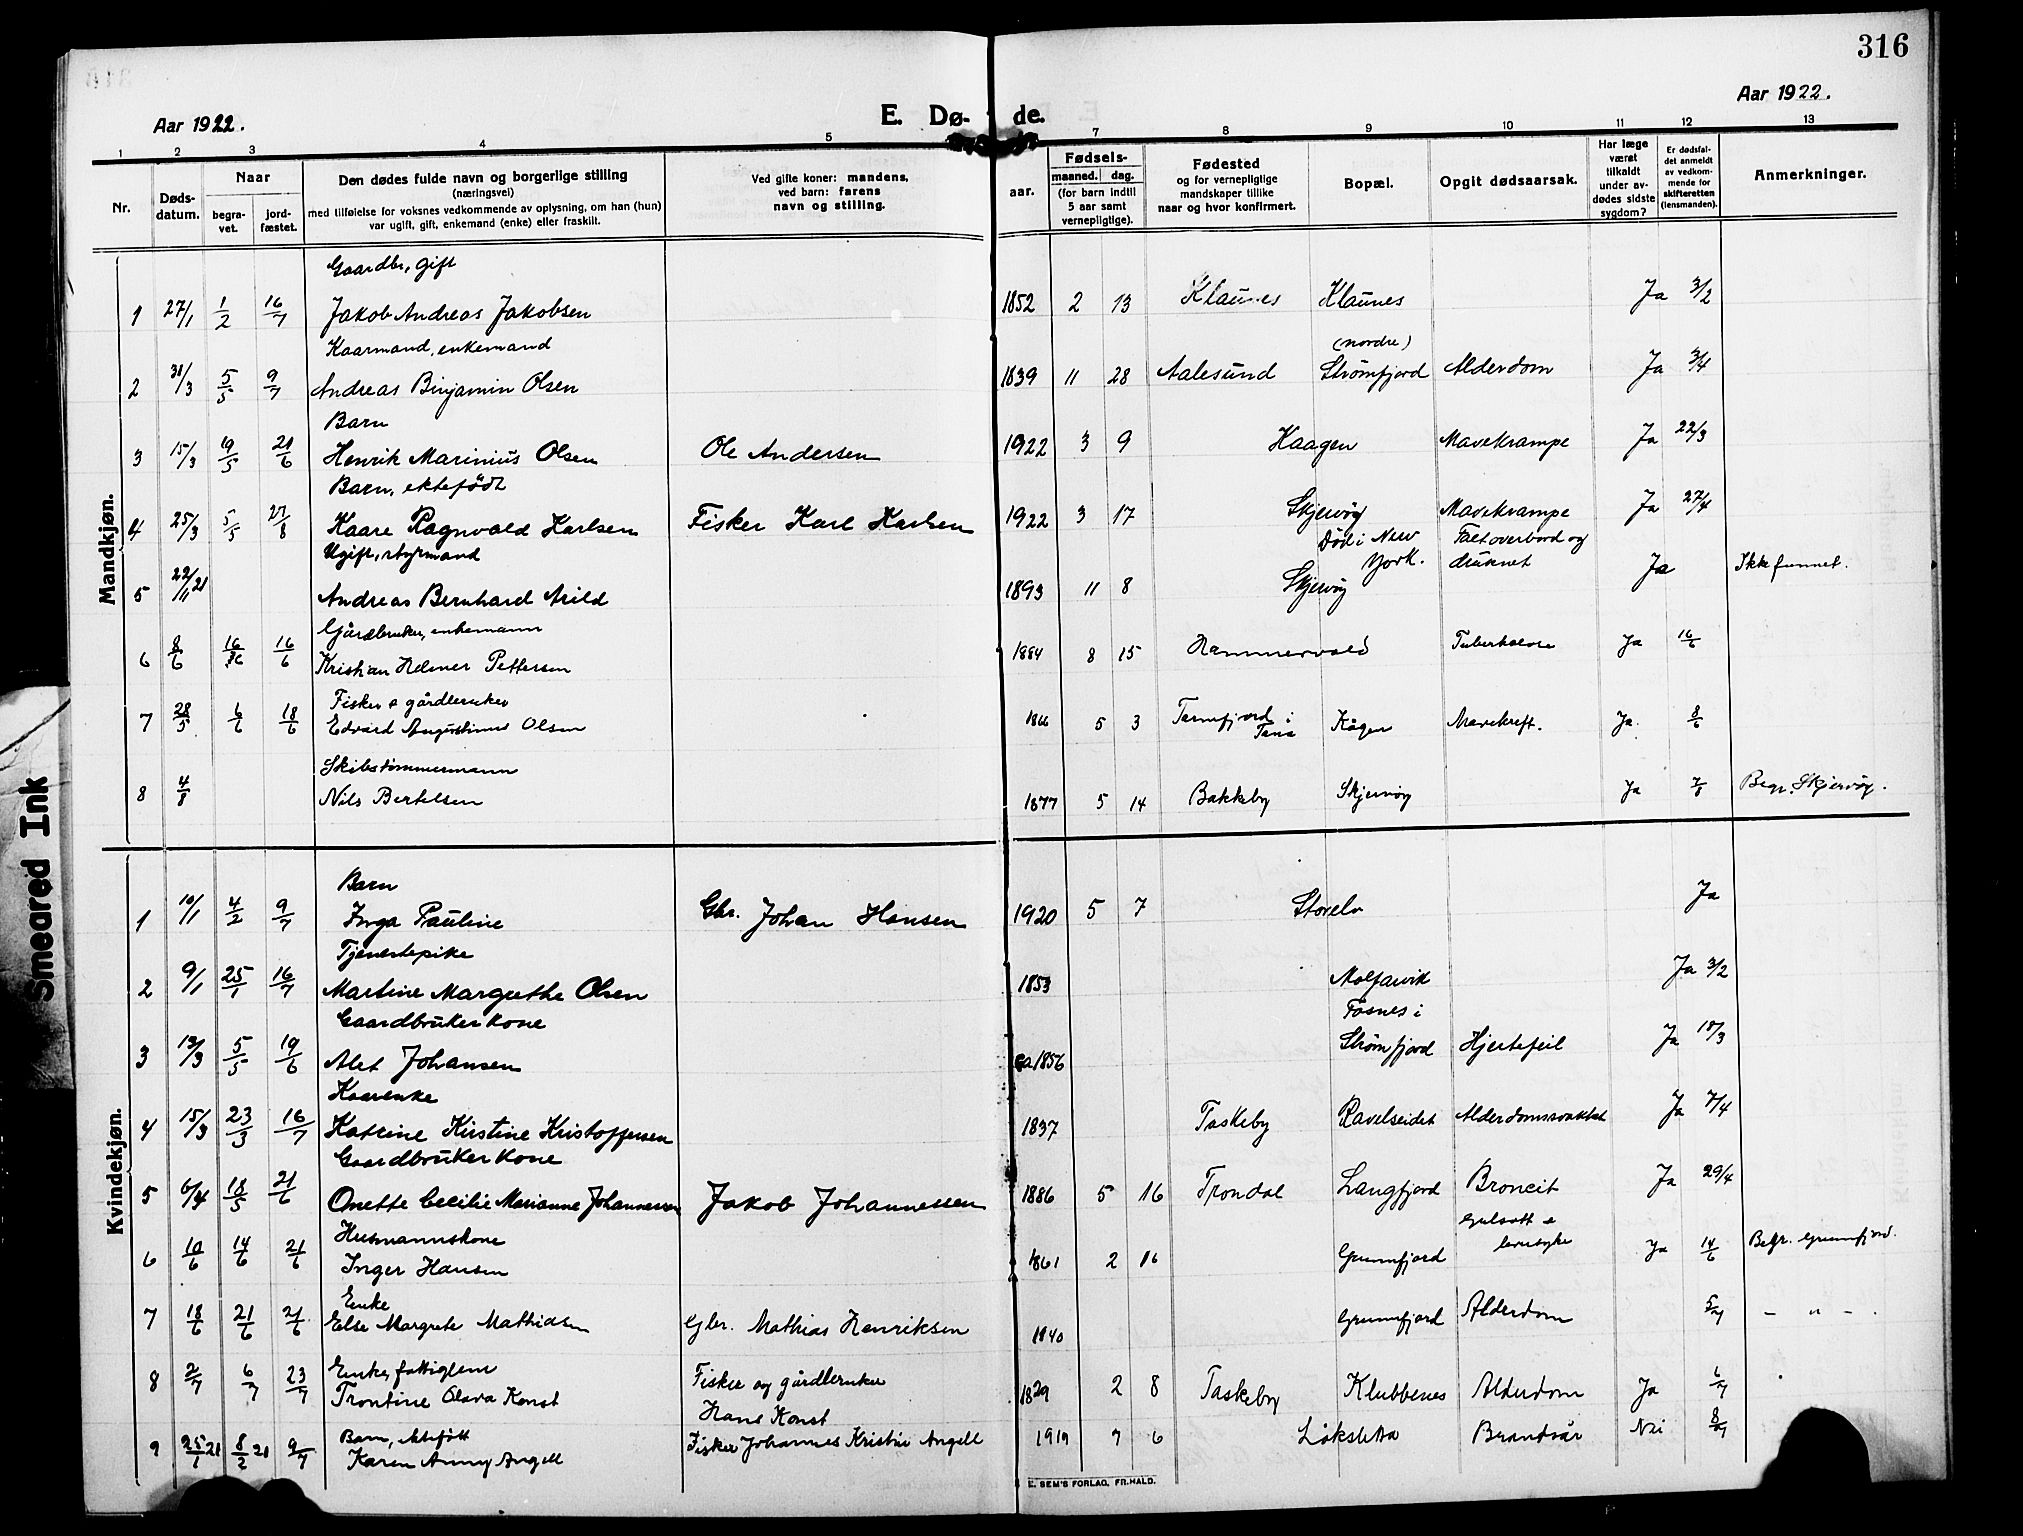 316
Aar 1922.
E. Dø- de.
Aar 1922.
1 2 3 4 5 7 8 9 10 11 12 13
Nr.
Døds-datum.
Naar
begra-vet.
jord-fæstet.
Den dødes fulde navn og borgerlige stilling
(næringsvei)
med tilføielse for voksnes vedkommende av oplysning, om han (hun)
var ugift, gift, enkemand (enke) eller fraskilt.
Ved gifte koner: mandens,
ved barn: farens
navn og stilling.
aar.
Fødsels-
maaned. dag.
(for barn indtil
5 aar samt
vernepligtige).
Fødested
og for vernepligtige
mandskaper tillike
naar og hvor konfirmert.
Bopæl.
Opgit dødsaarsak.
Har læge
været
tilkaldt
under av-
dødes sidste
sygdom?
Er dødsfal-
det anmeldt
av vedkom-
mende for
skifteretten
(lensmanden).
Anmerkninger.
Mandkjøn.
Gaardbr, gift
1 27/1 1/2 16/7 Jakob Andreas Jakobsen 1852 2 13 Klaunes Klaunes Ja 3/2
Kaarmand, enkemand (nordre)
2 31/3 5/5 9/7 Andreas Binjamin Olsen 1839 11 28 Aalesund Strømfjord Alderdom Ja 3/4
Barn
3 15/3 19/5 21/6 Henrik Marinius Olsen Ole Andersen 1922 3 9 Kaagen Mavekrampe Ja 22/3
Barn, ektefødt
4 25/3 5/5 27/8 Kaare Ragnvald Karlsen Fisker Karl Karlsen 1922 3 17 Skjervøy Mavekrampe Ja 27/4
Ugift, styrmand Død i New York. Falt overbord og druknet
5 22/11 21 Andreas Bernhard Arild 1893 11 8 Skjervøy Ja Ikke funnet.
Gårdbruker, enkemann
6 8/6 16/6 16/6 Kristian Helmer Pettersen 1884 8 15 Hammervold Tuberkulose Ja 16/6
Fisker & gårdbruker
7 28/5 6/6 18/6 Edvard Augustinus Olsen 1866 5 3 Tarmfjord i Tana Kågen Mavekreft. Ja. 8/6
Skibstømmermann
8 4/8 Nils Bertelsen 1877 5 14 Bakkeby Skjervøy Ja 7/8 Begr. Skjervøy.
Kvindekjøn.
Barn
1 10/1 4/2 9/7 Inga Pauline Gbr. Johan Hansen 1920 5 7 Storelv Ja
Tjenestepike
2 9/1 25/1 16/7 Martine Margrethe Olsen 1853 Molfarvik Ja 3/2
Gaardbruker kone Fosnes i
3 13/3 5/5 19/6 Alet Johansen ca 1856 Strømfjord Hjertefeil Ja 18/3
Kaarenke
4 15/3 23/3 16/7 Katrine Kirstine Kristoffersen 1837 Taskeby Ravelseidet Alderdomssvakhet Ja 7/4
Gaardbruker kone
5 6/4 18/5 21/6 Onette Cecilie Marianne Johannessen Jakob Johannessen 1886 5 16 Trondal Langfjord Broncit Ja 29/4
Husmannskone Gulsott &
6 10/6 14/6 21/6 Inger Hansen 1861 2 16 Grunnfjord leversyke Ja 14/6 Begr. Grunnfjord.
Enke
7 18/6 21/6 21/6 Else Margrete Mathiasen Gbr. Mathias Henriksen 1840 Grunnfjord Alderdom 5/7 – " – .
Enke, fattiglem Fisker og gårdbruker
8 2/7 6/7 23/7 Trontine Olava Konst Hans Konst 1829 2 8 Taskeby Klubbenes Alderdom Ja 6/7
Barn, ektefødt
9 25/1 21 8/2 21 9/7 Karen Anny Angell Fisker Johannes Kristian Angell 1919 7 6 Løksletta Brandsår Nei 8/7
E. SEM'S FORLAG, FR.HALD.
Smeared Ink